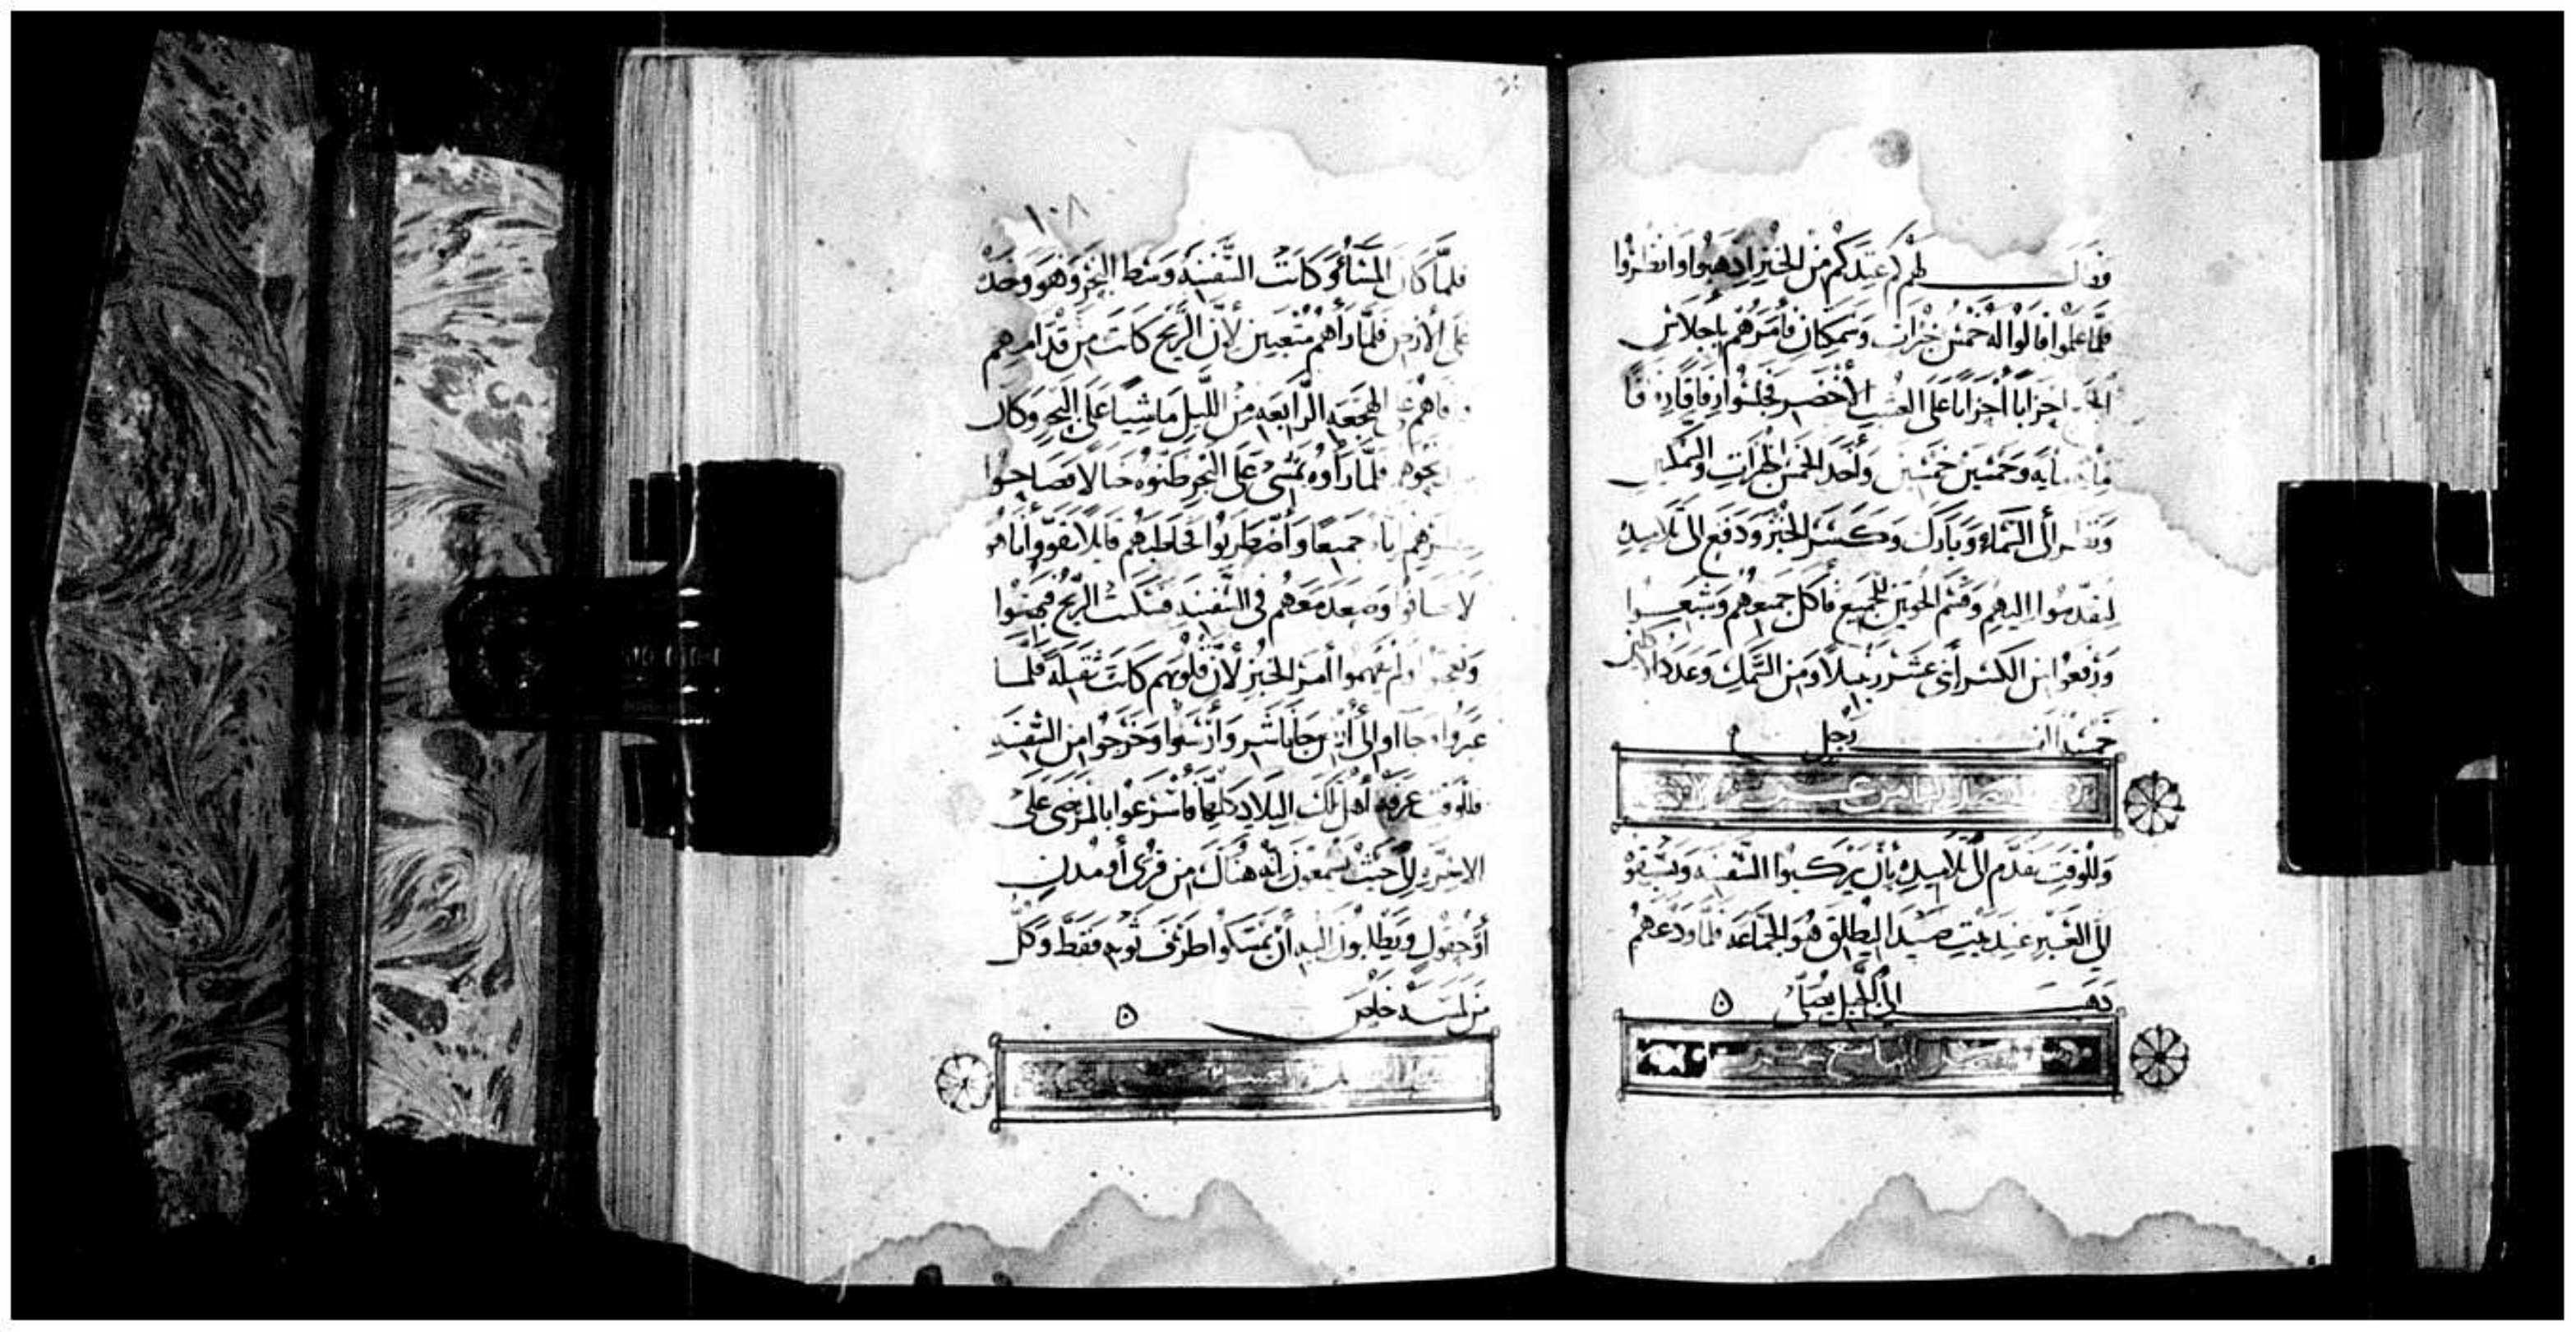 وقال لهم كم عندكم من الخبز اذهبوا وانظروا
فلَمَّا علموا قالوا له خمس خبزات وسمكتان فأمرهم بإجلاس
احزابًا أحزابًا على العشب الأخضر فجلسوا رفاقًا رفاقًا
مايه وخمسين خمسين وأخذ الخمس الخبزات والسمكتين
ونظر إلى السَّماء وبارك وكسر الخبز ودفع إلى تلاميذه
ليقدموا اليهم وقسم الحوتين للجميع فأكل جميعهم وشبعوا
ورفعوا من الكسر أثنى عشر زنبيلًا ومن السَّمك وعدد
خمسة الف رجل
الفصل الثامن عشر
وللوقت تقدَّم إلى تلاميذه بأن يركبوا السَّفينه ويسبقوه
إلى العبر عند بيت صيدا ليطلق هو الجماعه فلمَّا ودعهم
ذهب إلى الجبل ليصلّى
الفصل التاسع عشر
١٠٨
فلمَّا كان المساء وكانت السَّفينه وسط البحر وهو وحده
على الأرض فلمَّا رأهم متعبين لأن الريح كانت من قدَّامهم
وافاهم في الهجعه الرابعه من الليل ماشيًا على البحر وكان
فلمَّا رأوه يمشى على البحر ظنوه خيالًا فصاحوا
جميعًا وأضطربوا فخاطبهم قايلا تقووا أنا هو
لا تخافوا وصعد معهم فى السَّفينه فسكنت الريح فبهتوا
وتعجبوا ولم يفهموا أمر الخبز لأن قلوبهم كانت ثقيله فلمَّا
عبروا جاءوا إلى أرض جاناشر وأرسوا وخرجوا من السَّفينه
فللوقت عرفه أهل تلك البلاد كلها فأسرعوا بالمرضى على
الاسرَّه إلى حيث يسمعون أنه هناك من قرى أو مدن
أو حقول ويطلبون اليه أن يمسكوا طرف ثوبه فقط وكل
من لمسه خلص